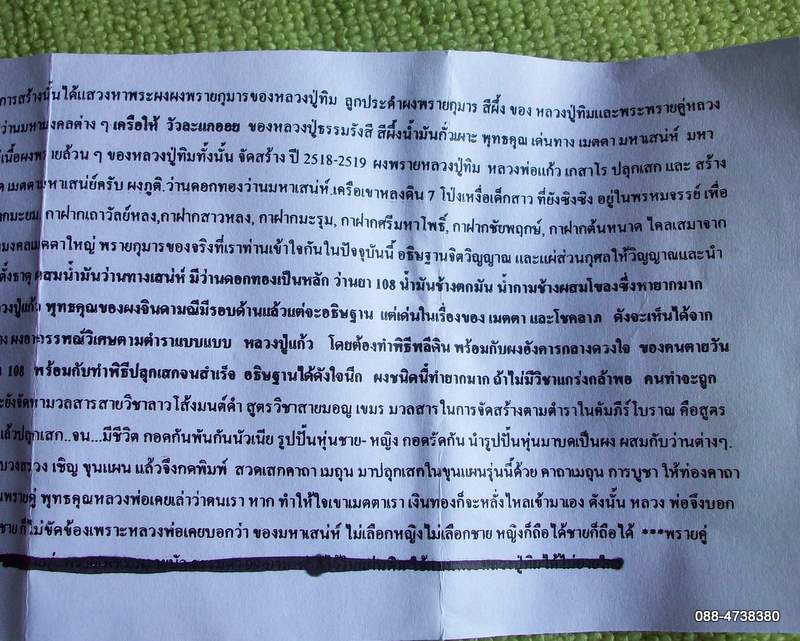 การสร้างนั้นได้แสวงหาพระผงผงพรายกุมารของหลวงปู่ทิม ลูกประคำผงพรายกุมาร สีผึ้ง ของ หลวงปู่ทิมและพระพรายคู่หลวง
ว่านมหามงคลต่าง ๆ เครือให้ วัวละแกออย ของหลวงปู่ธรรมรังสี สีผึ้งน้ำมันกั่วเผาะ พุทธคุณ เด่นทาง เมตตา มหาเสน่ห์ มหา
เนื้อผงพรายล้วน ๆ ของหลวงปู่ทิมทั้งนั้น จัดสร้าง ปี 2518-2519 ผงพรายหลวงปู่ทิม หลวงพ่อแก้ว เกสาโร ปลุกเสก และ สร้าง
เมตตามหาเสน่ย์ครับ ผงภูติ.ว่านดอกทองว่านมหาเสน่ห์.เครือเขาหลงดิน 7 โป่งเหงื่อเด็กสาว ที่ยังซิงซิง อยู่ในพรหมจรรย์ เพื่อ
กาฝากมะยม, กาฝากเถาวัลย์หลง,กาฝากสาวหลง, กาฝากมะรุม, กาฝากศรีมหาโพธิ์, กาฝากชัยพฤกษ์, กาฝากต้นหนาด ไคลเสมาจาก
มงคลเมตตาใหญ่ พรายกุมารของจริงที่เราท่านเข้าใจกันในปัจจุบันนี้ อธิษฐานจิตวิญญาณ และแผ่ส่วนกุศลให้วิญญาณและนำ
ตั้งธาตุ ผสมน้ำมันว่านทางเสน่ห์ มีว่านดอกทองเป็นหลัก ว่านยา 108 น้ำมันช้างตกมัน น้ำกามช้างผสมโขลงซึ่งหายากมาก
วงปู่แก้ว พุทธคุณของผงจินดามณีมีรอบด้านแล้วแต่จะอธิษฐาน แต่เด่นในเรื่องของ เมตตา และโชคลาภ ดังจะเห็นได้จาก
ผงอาถรรพณ์วิเศษตามตำราแบบแบบ หลวงปู่แก้ว โดยต้องทำพิธีพลีหิน พร้อมกับผงอังคารกลางดวงใจ ของคนตายวัน
108 พร้อมกับทำพิธีปลุกเสกจนสำเร็จ อธิษฐานได้ดังใจนึก ผงชนิดนี้ทำยากมาก ถ้าไม่มีวิชาแกร่งกล้าพอ คนทำจะถูก
ะยังจัดหามวลสารสายวิชาลาวโส้งมนต์ดำ สูตรวิชาสายมอญ เขมร มวลสารในการจัดสร้างตามตำราในคัมภีร์โบราณ คือสูตร
แล้วปลุกเสก..จน...มีชีวิต กอดกันพันกันนัวเนีย รูปปั้นหุ่นชาย- หญิง กอดรัดกัน นำรูปปั้นหุ่นมาบดเป็นผง ผสมกับว่านต่างๆ.
บวงสรวง เชิญ ขุนแผน แล้วจึงกดพิมพ์ สวดเสกคาถา เมถุน มาปลุกเสกในขุนแผนรุ่นนี้ด้วย คาถาเมถุน การบูชา ให้ท่องคาถา
พรายคู่ พุทธคุณหลวงพ่อเคยเล่าว่าคนเรา หาก ทำให้ใจเขาเมตตาเรา เงินทองก็จะหลั่งไหลเข้ามาเอง ดังนั้น หลวง พ่อจึงบอก
ชาย ก็ไม่ขัดข้องเพราะหลวงพ่อเคยบอกว่า ของมหาเสน่ห์ ไม่เลือกหญิงไม่เลือกชาย หญิงก็ถือได้ชายก็ถือได้ ***พรายคู่
088-4738380